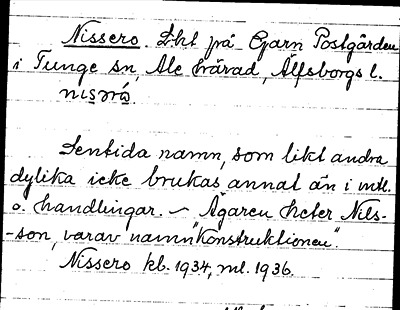 Nissero. Lht på Gjarn Postgården
i Tunge sn, Ale härad, Älfsborgs l.
Sentida namn, som likt andra
dylika icke brukas annat än i mtl.
o. handlingar. – Ägaren heter Nils-
-son, varav namn "Konstruktionen".
Nissero kb. 1934, ml. 1936.